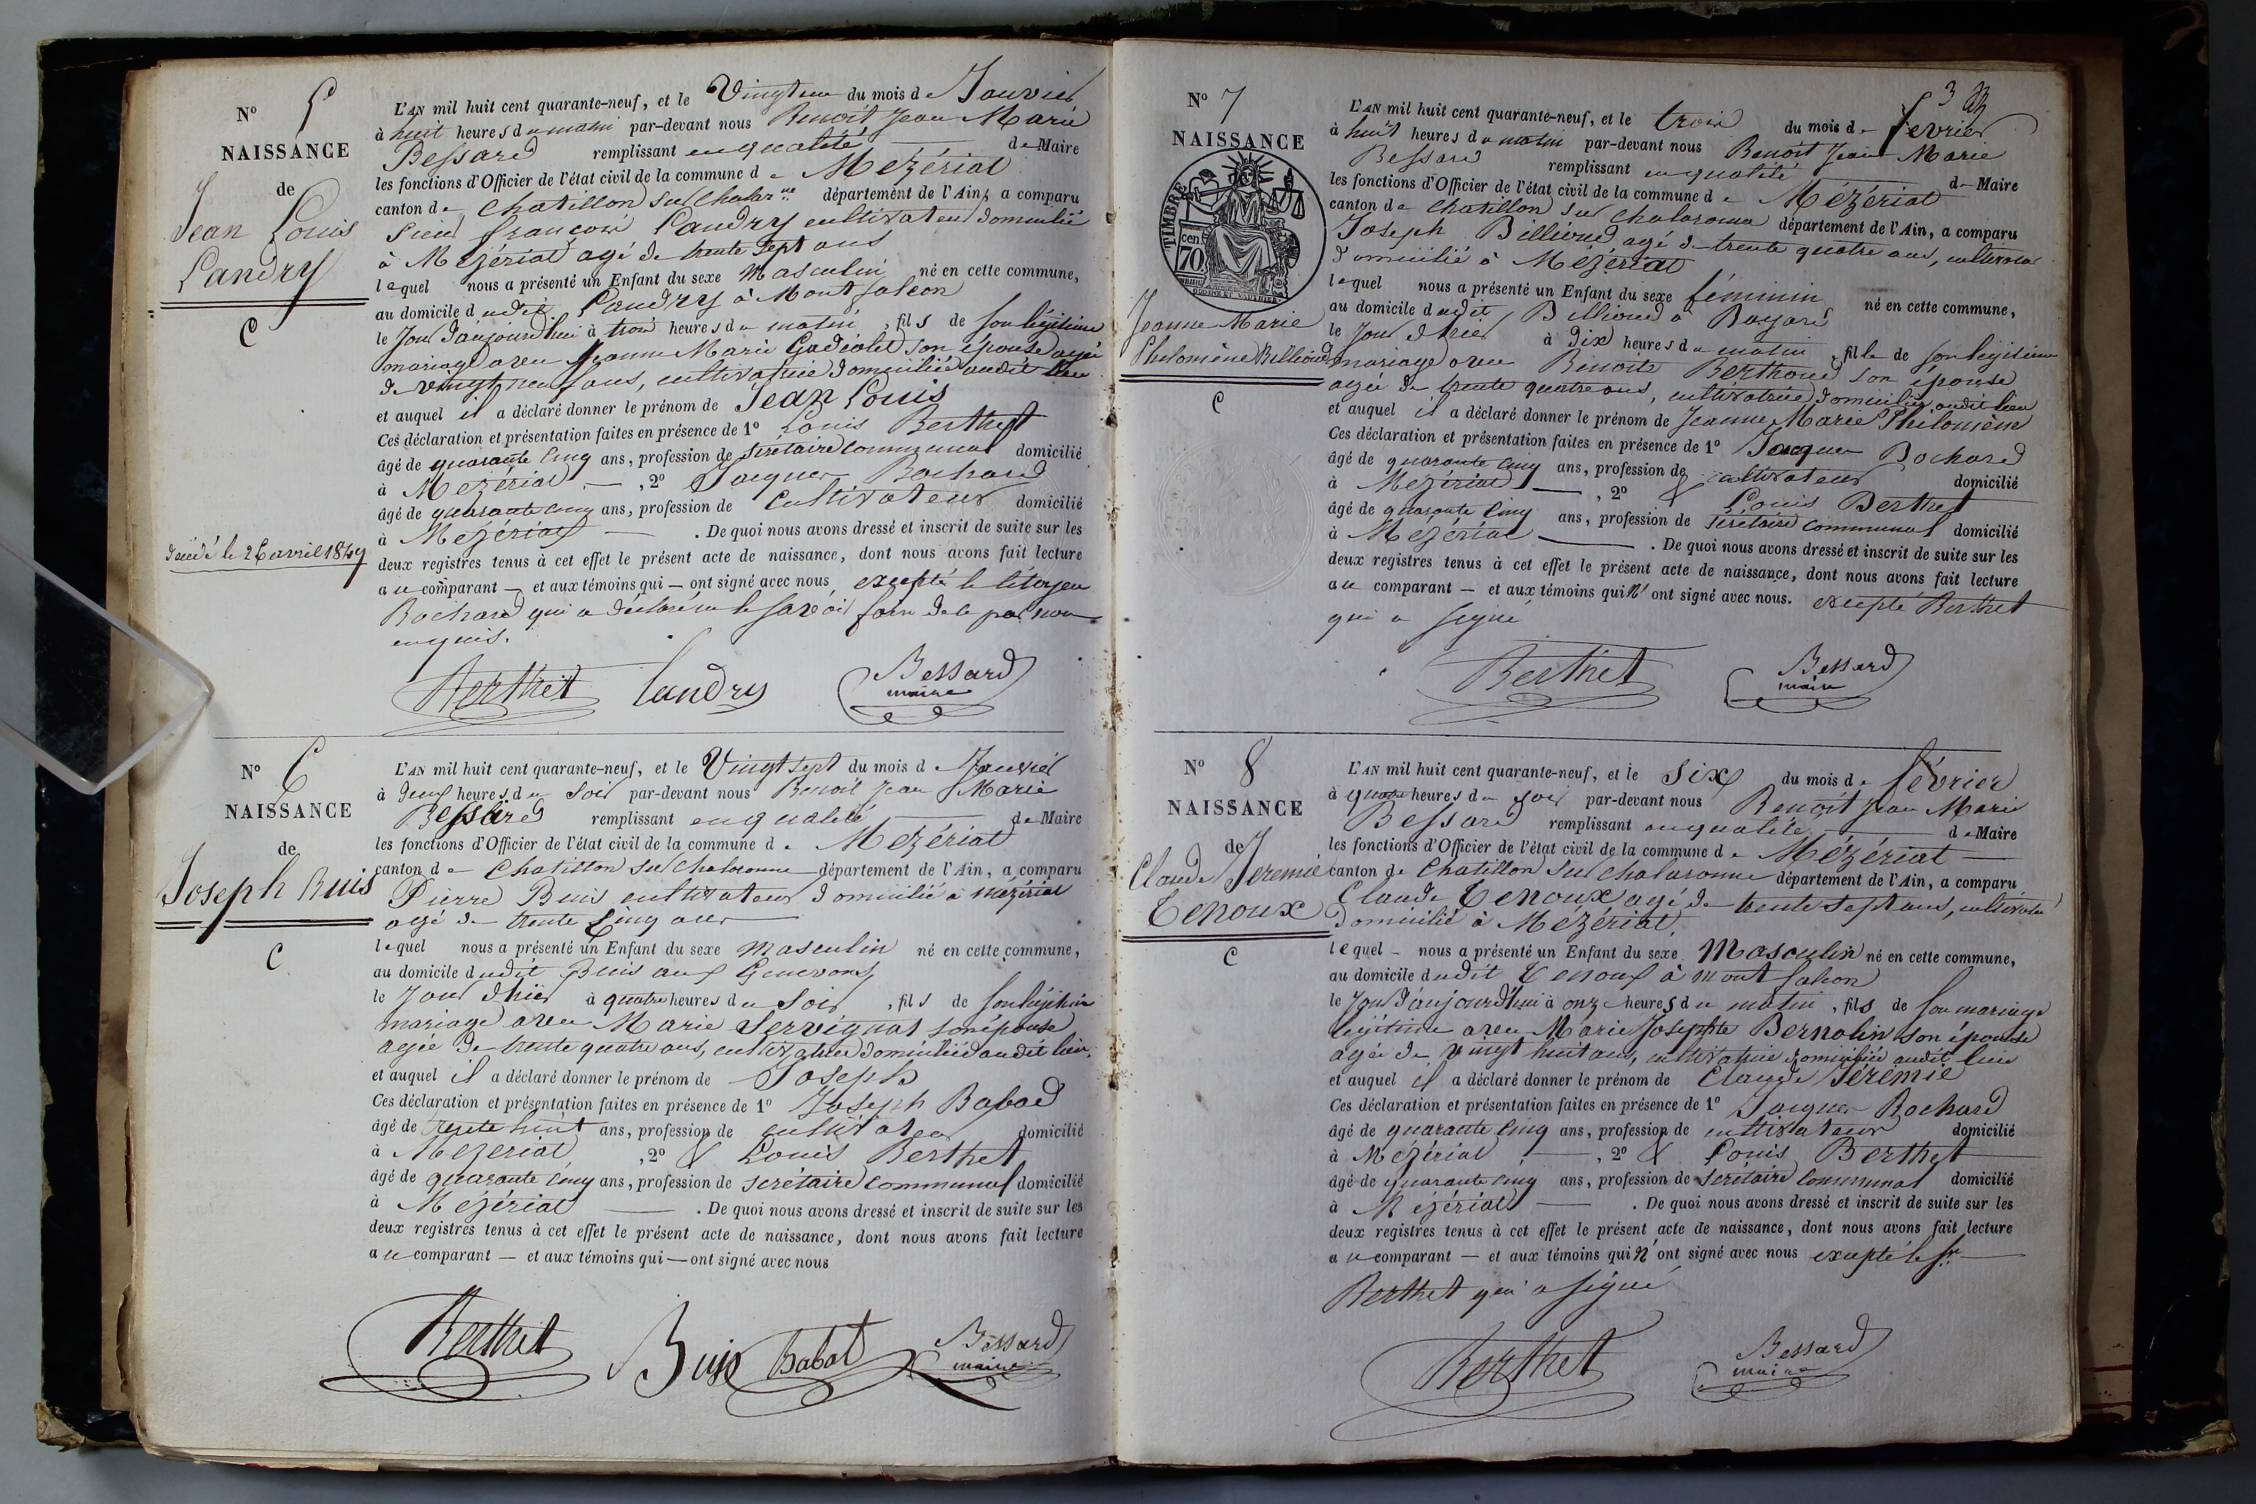 N° 5
NAISSANCE
de
Jean Louis
Landry
C
décédé le 26 avril 1849
L'AN mil huit cent quarante-neuf, et le Vingt un du mois de Janvier
à huit heures du matin par-devant nous Benoit Jean Marie
Bessard remplissant en qualité de Maire
les fonctions d'Officier de l'état civil de la commune de Mézériat
canton de Chatillon sur Chalarne département de l'Ain, a comparu
Sieur françois Landry cultivateur domicilié
à Mézériat agé de trente sept ans
lequel nous a présenté un Enfant du sexe Masculin né en cette commune,
au domicile dudit Landry à Montfalcon
le Jour d'aujourd'hui à trois heures du matin, fils de son légitime
mariage avec Jeanne Marie son épouse agée
de vingt neuf ans, cultivatrice domiciliée audit lieu
et auquel il a déclaré donner le prénom de Jean Louis
Ces déclaration et présentation faites en présence de 1° Louis Berthet
âgé de quarante cinq ans, profession de secrétaire communal domicilié
à Mézériat, 2° Jacques Bochard
âgé de quarante cinq ans, profession de cultivateur domicilié
à Mézériat. De quoi nous avons dressé et inscrit de suite sur les
deux registres tenus à cet effet le présent acte de naissance, dont nous avons fait lecture
au comparant — et aux témoins qui — ont signé avec nous excepté le citoyen
Bochard qui a déclaré ne le savoir faire de ce par nous
enquis.
Berthet Landry Bessard
maire
N° 6
NAISSANCE
de
Joseph Buis
C
L'AN mil huit cent quarante-neuf, et le Vingt sept du mois de Janvier
à deux heures du soir par-devant nous Benoit Jean Marie
Bessard remplissant en qualité de Maire
les fonctions d'Officier de l'état civil de la commune de Mézériat
canton de Chatillon sur Chalaronne département de l'Ain, a comparu
Pierre Buis cultivateur domicilié à Mézériat
agé de trente cinq ans
lequel nous a présenté un Enfant du sexe Masculin né en cette commune,
au domicile dudit Buis aux Genevrons
le Jour d'hier à quatre heures du Soir, fils de son légitime
mariage avec Marie Servignat son épouse
agée de trente quatre ans, cultivatrice domiciliée audit lieu.
et auquel il a déclaré donner le prénom de Joseph
Ces déclaration et présentation faites en présence de 1° Joseph Babad
âgé de trente huit ans, profession de cultivateur domicilié
à Mézériat, 2° & Louis Berthet
âgé de quarante cinq ans, profession de secrétaire communal domicilié
à Mézériat. De quoi nous avons dressé et inscrit de suite sur les
deux registres tenus à cet effet le présent acte de naissance, dont nous avons fait lecture
au comparant — et aux témoins qui — ont signé avec nous
Berthet Buis Babat Bessard
maire
3
N° 7
NAISSANCE
TIMBRE
70 cen
Jeanne Marie
Philomène Billioud
C
L'AN mil huit cent quarante-neuf, et le trois du mois de février
à huit heures du matin par-devant nous Benoit Jean Marie
Bessard remplissant en qualité de Maire
les fonctions d'Officier de l'état civil de la commune de Mézériat
canton de Chatillon sur Chalaronne département de l'Ain, a comparu
Joseph Billioud agé de trente quatre ans, cultivateur
domicilié à Mézériat
lequel nous a présenté un Enfant du sexe féminin né en cette commune,
au domicile dudit Billioud à Bayard
le Jour d'hier à dix heures du matin, fille de son légitime
mariage avec Benoite Berthoud son épouse
agée de trente quatre ans, cultivatrice domiciliée audit lieu
et auquel il a déclaré donner le prénom de Jeanne Marie Philomène
Ces déclaration et présentation faites en présence de 1° Jacques Bochard
âgé de quarante cinq ans, profession de cultivateur domicilié
à Mézériat, 2° & Louis Berthet
âgé de quarante cinq ans, profession de secrétaire communal domicilié
à Mézériat. De quoi nous avons dressé et inscrit de suite sur les
deux registres tenus à cet effet le présent acte de naissance, dont nous avons fait lecture
au comparant — et aux témoins qui n'ont signé avec nous. excepté Berthet
qui a signé
Berthet Bessard
maire
N° 8
NAISSANCE
de
Claude Jeremie
Tenoux
C
L'AN mil huit cent quarante-neuf, et le six du mois de février
à quatre heures du soir par-devant nous Benoit Jean Marie
Bessard remplissant en qualité de Maire
les fonctions d'Officier de l'état civil de la commune de Mézériat
canton de Chatillon sur Chalaronne département de l'Ain, a comparu
Claude Tenoux agé de trente sept ans, cultivateur
domicilié à Mézériat.
lequel nous a présenté un Enfant du sexe Masculin né en cette commune,
au domicile dudit Tenoux à Montfalcon
le Jour d'aujourd'hui à onze heures du matin, fils de son mariage
légitime avec Marie Josephte Bernolin son épouse
agée de vingt huit ans, cultivatrice domiciliée audit lieu
et auquel il a déclaré donner le prénom de Claude Jérémie
Ces déclaration et présentation faites en présence de 1° Jacques Bochard
âgé de quarante cinq ans, profession de cultivateur domicilié
à Mézériat, 2° & Louis Berthet
âgé de quarante cinq ans, profession de secrétaire communal domicilié
à Mézériat. De quoi nous avons dressé et inscrit de suite sur les
deux registres tenus à cet effet le présent acte de naissance, dont nous avons fait lecture
au comparant — et aux témoins qui n'ont signé avec nous excepté le Sr
Berthet qui a signé
Berthet Bessard
maire